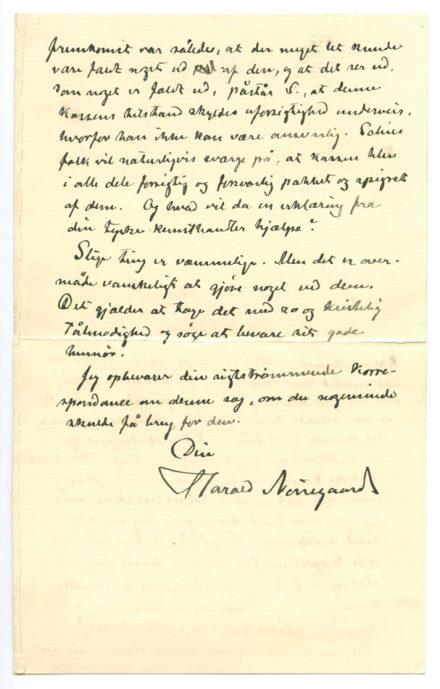 fremkomst var således, at der meget let kunde
være faldt noget ud af den, og at det ser ud,
som noget er faldt ud, påstår S., at denne
kassens tilstand skyldes uforsigtighed underveis,
hvorfor han ikke kan være ansvarlig.
folk vil naturligvis sværge på, at kassen blev
i alle dele forsigtig og forsvarlig pakket og spigret
af dem. Og hvad vil da en erklæring fra
din tyske kunsthandler hjælpe?
Slige ting er væmmelige. Men det er over-
måde vanskeligt at gjöre noget ved dem.
Det gjælder at tage det med ro og kristelig
Tålmodighed og söge at bevare sit gode
humör.
Jeg opbevarer din rigtströmmende Korre-
spondance om denne sag, om du nogensinde
skulde få brug for den.
Din
Harald Nörregaard